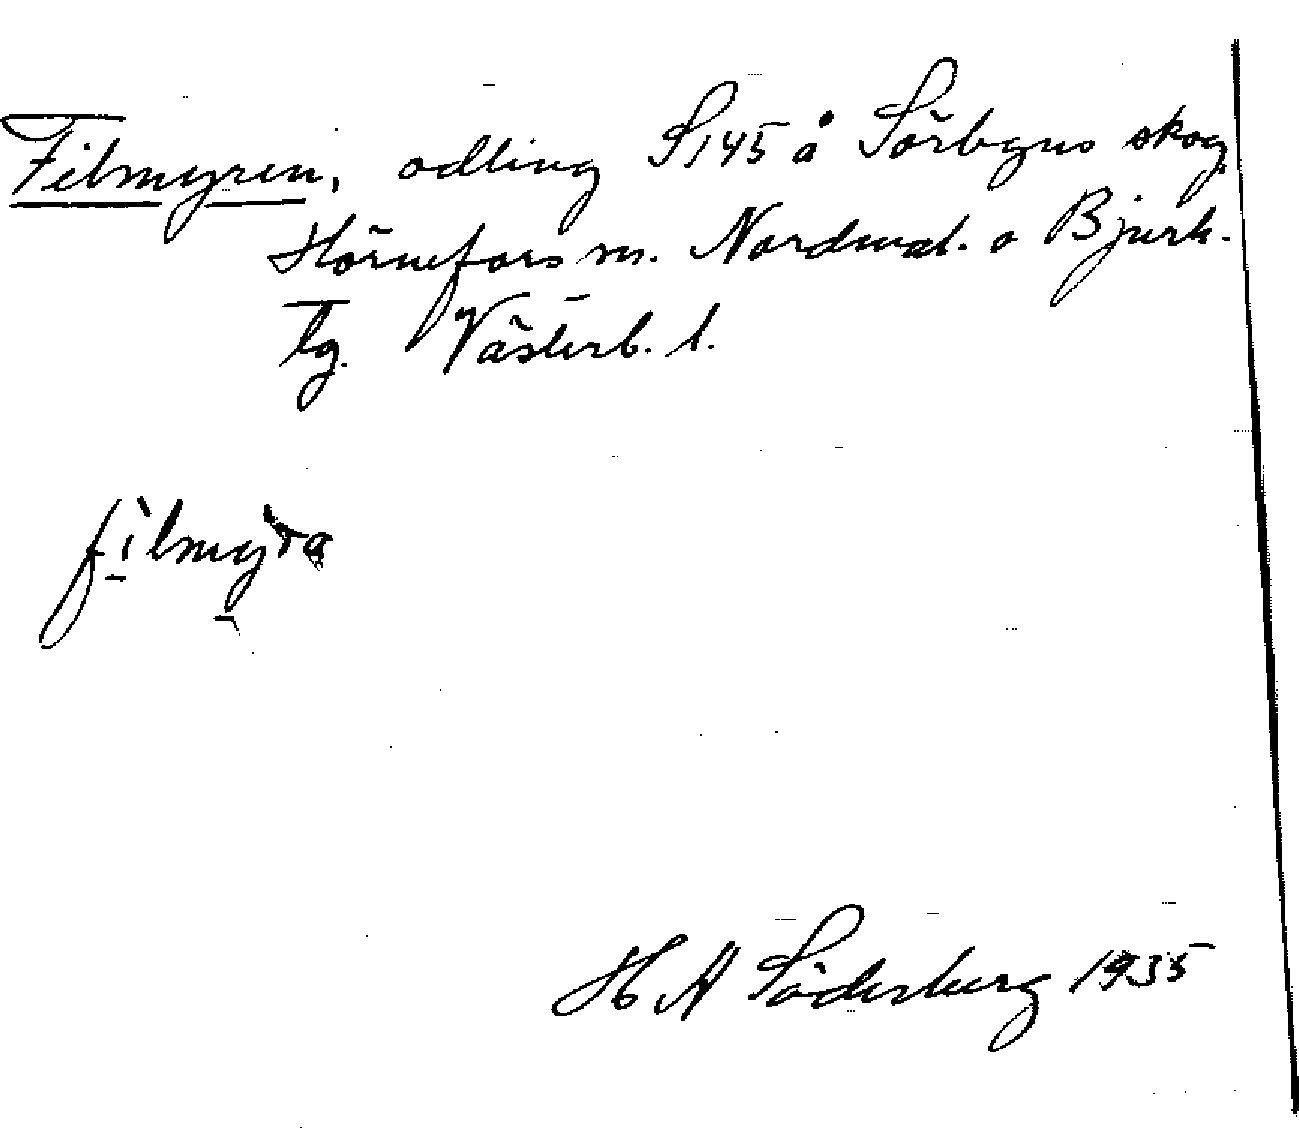 Filmyren, odling S145 å Sörbyns skog,
Hörnefors sn. Nordmal. o Bjurh.
tg. Västerb. l.
filmyra
H A Söderberg 1935